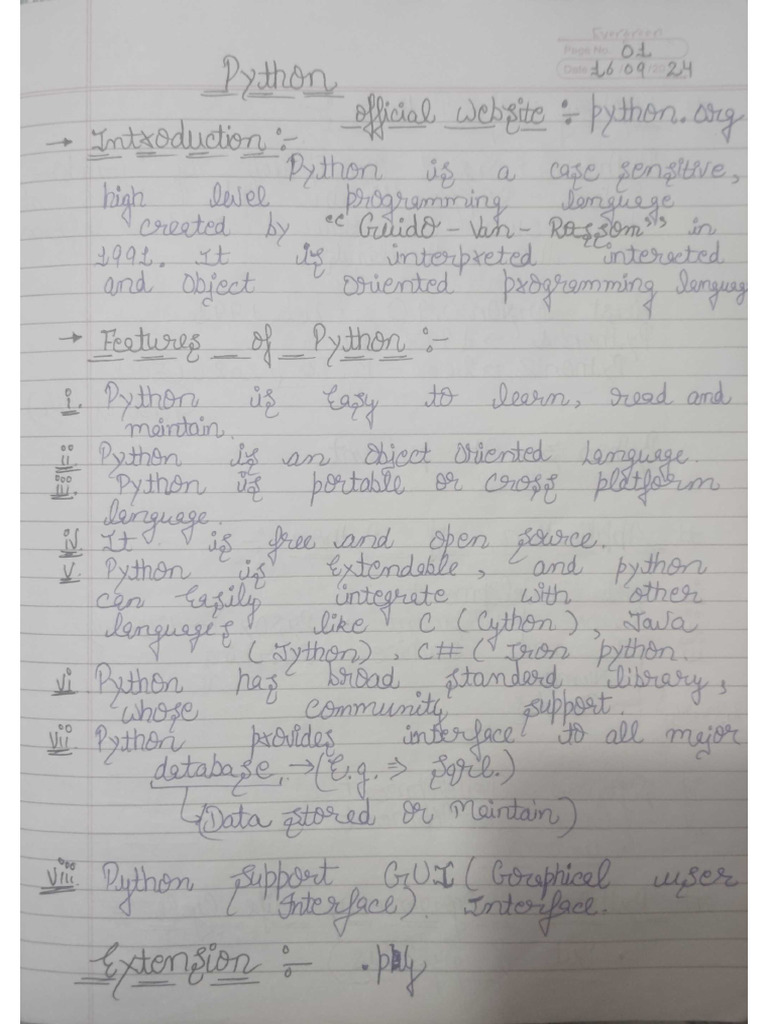 Evergreen
Page No. 01
Date 16/09/2024
Python
official website :- python.org
→ Introduction :-
Python is a case sensitive,
high level programming language
created by "Guido-Van-Rossom" in
1991. It is interpreted interected
and object oriented programming lenguag
→ Features of Python :-
i. Python is Easy to learn, read and
meintain.
ii Python is an Object Oriented Language.
iii. Python is portable or cross platform
language.
iv It is free and open source.
v. Python is Extendable, and python
can Easily integrate with other
languages like C (Cython), Java
(Jython), C# (Iron python.
vi Python has broad standerd library,
whose community support.
vii Python provides interface to all major
database. →(E.g. ⇒ Sqril.)
(Data stored or Maintain)
viii Python support GUI (Goraphical user
Interface) Interface.
Extension :- .py